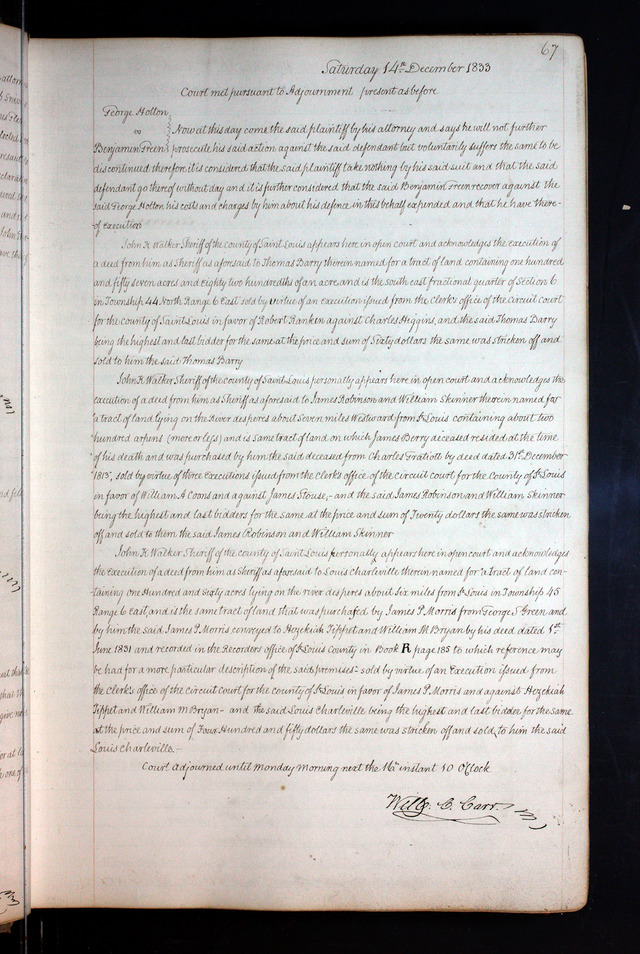 67
Saturday 14th December 1833
Court met pursuant to Adjournment present as before
George Holton
vs
Now at this day come the said plaintiff by his attorney and says he will not further
Benjamin Freen prosecute his said action against the said defendant but voluntarily suffers the same to be
discontinued therefore it is considered that the said plaintiff take nothing by his said suit and that the said
defendant go thereof without day and it is further considered that the said Benjamin Freen recover against the
said George Holton his costs and charges by him about his defence in this behalf expended and that he have there-
of execution
John K Walker Sheriff of the county of Saint Louis appears here in open court and acknowledges the execution of
a deed from him as Sheriff as aforsaid to Thomas Barry therein named for a tract of land containing one hundred
and fifty seven acres and eighty two hundredths of an acre and is the south east fractional quarter of Section 6
in Township 44 North Range 6 East sold by virtue of an execution issued from the Clerk's office of the circuit court
for the county of Saint Louis in favor of Robert Rankin against Charles Higgins, and the said Thomas Barry
being the highest and last bidder for the same at the price and sum of Sixty dollars the same was stricken off and
sold to him the said Thomas Barry
John K Walker Sheriff of the county of Saint Louis personally appears here in open court and acknowledges the
execution of a deed from him as Sheriff as aforesaid to James Robinson and William Skinner therein named for
"a tract of land lying on the River desperes about Seven miles Westward from St Louis containing about two
hundred arpens (more or less) and is same tract of land on which James Berry deceased resided at the time
of his death and was purchased by him the said deceased from Charles Gratiott by deed dated 31st December
1813", sold by virtue of three executions issued from the Clerk's office of the circuit court for the County of St Louis
in favor of William A Coons and against James Stouse,- and the said James Robinson and William Skinner
being the highest and last bidders for the same at the price and sum of Twenty dollars the same was stricken
off and sold to them the said James Robinson and William Skinner
John K Walker Sheriff of the county of Saint Louis personally appears here in open court and acknowledges
the execution of a deed from him as Sheriff as aforesaid to Louis Charleville therein named for "a tract of land con-
taining one Hundred and Sixty acres lying on the river desperes about Six miles from St Louis in Township 45
Range 6 East, and is the same tract of land that was purchased by James P. Morris from George S Green and
by him the said James P. Morris conveyed to Hezekiah Tippet and William M Bryan by his deed dated 1st
June 1831 and recorded in the Recorders office of St Louis County in Book R page 185 to which reference may
be had for a more particular description of the said premises"- sold by virtue of an Execution issued from
the Clerk's office of the circuit court for the county of St Louis in favor of James P. Morris and against Hezekiah
Tippet and William M Bryan - and the said Louis Charleville being the highest and last bidder for the same
at the price and sum of Four Hundred and fifty dollars the same was stricken off and sold to him the said
Louis Charleville.-
Court Adjourned until Monday Morning next the 16th instant 10 O'Clock
Will: C. Carr